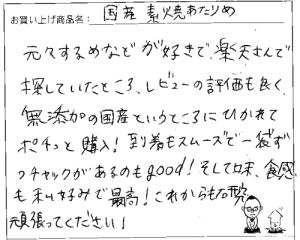 お買い上げ商品名: 国産 素焼あたりめ
元々するめなどが好きで、楽天さんで
探していたところ、レビューの評価も良く、
無添加の国産というところにひかれて
ポチっと購入!到着もスムーズで一袋ず
つチャックがあるのもgood!そして味、食感
も私好みで最高!これからも
頑張ってください!